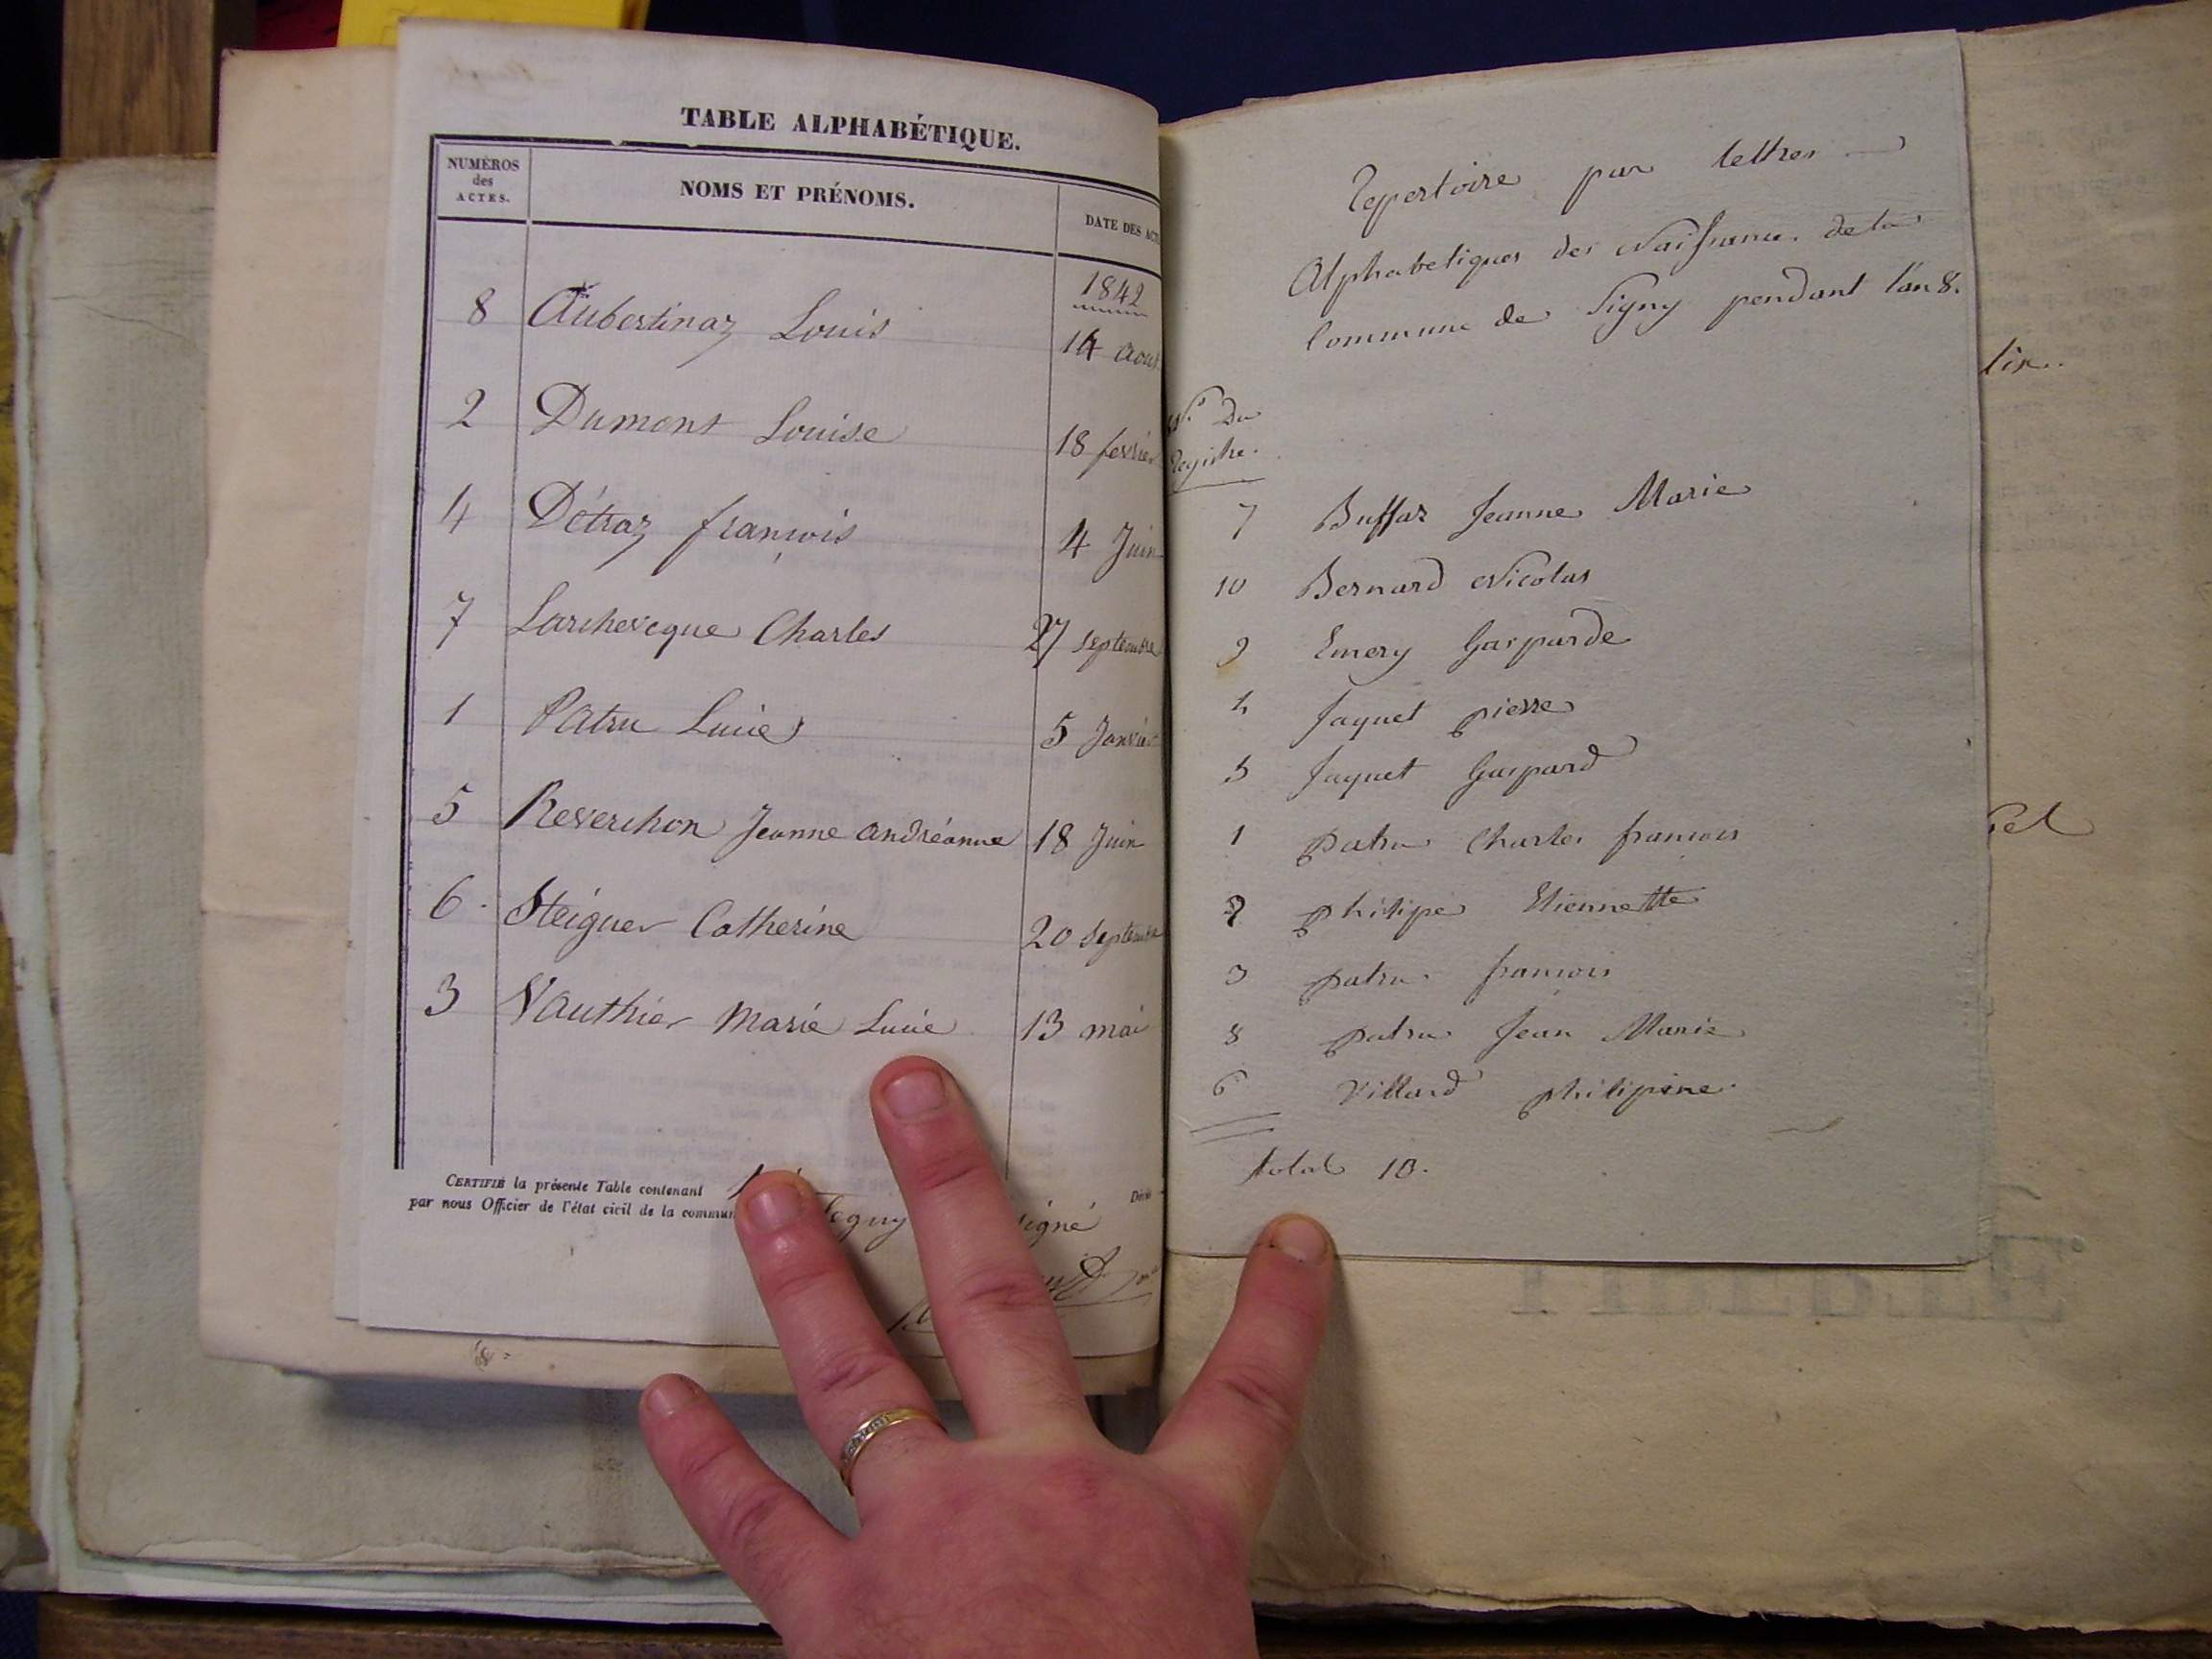 TABLE ALPHABÉTIQUE.
NUMÉROS des ACTES.
NOMS ET PRÉNOMS.
DATE DES ACT
1842
8 Aubertinaz Louis 14 Aout
2 Dumont Louise 18 fevrier
4 Détraz françois 4 Juin
7 Larcheveque Charles 27 septembre
1 Patru Lucie 5 Janvier
5 Reverchon Jeanne andréanne 18 Juin
6 Steiguer Catherine 20 Septembre
3 Vauthier Marie Lucie 13 mai
CERTIFIÉ la présente Table contenant
par nous Officier de l'état civil de la commun
signé
Repertoire par lettres
Alphabetiques des Naissances de la
Commune de Signy pendant l'an 8.
N.º Du
Registre.
7 Buffaz Jeanne Marie
10 Bernard Nicolas
9 Emery Gasparde
4 Jaquet pierre
5 Jaquet Gaspard
1 patru Charles francois
2 philipe Etiennette
3 patru francois
8 patru Jean Marie
6 Villard philipine.
total 10.